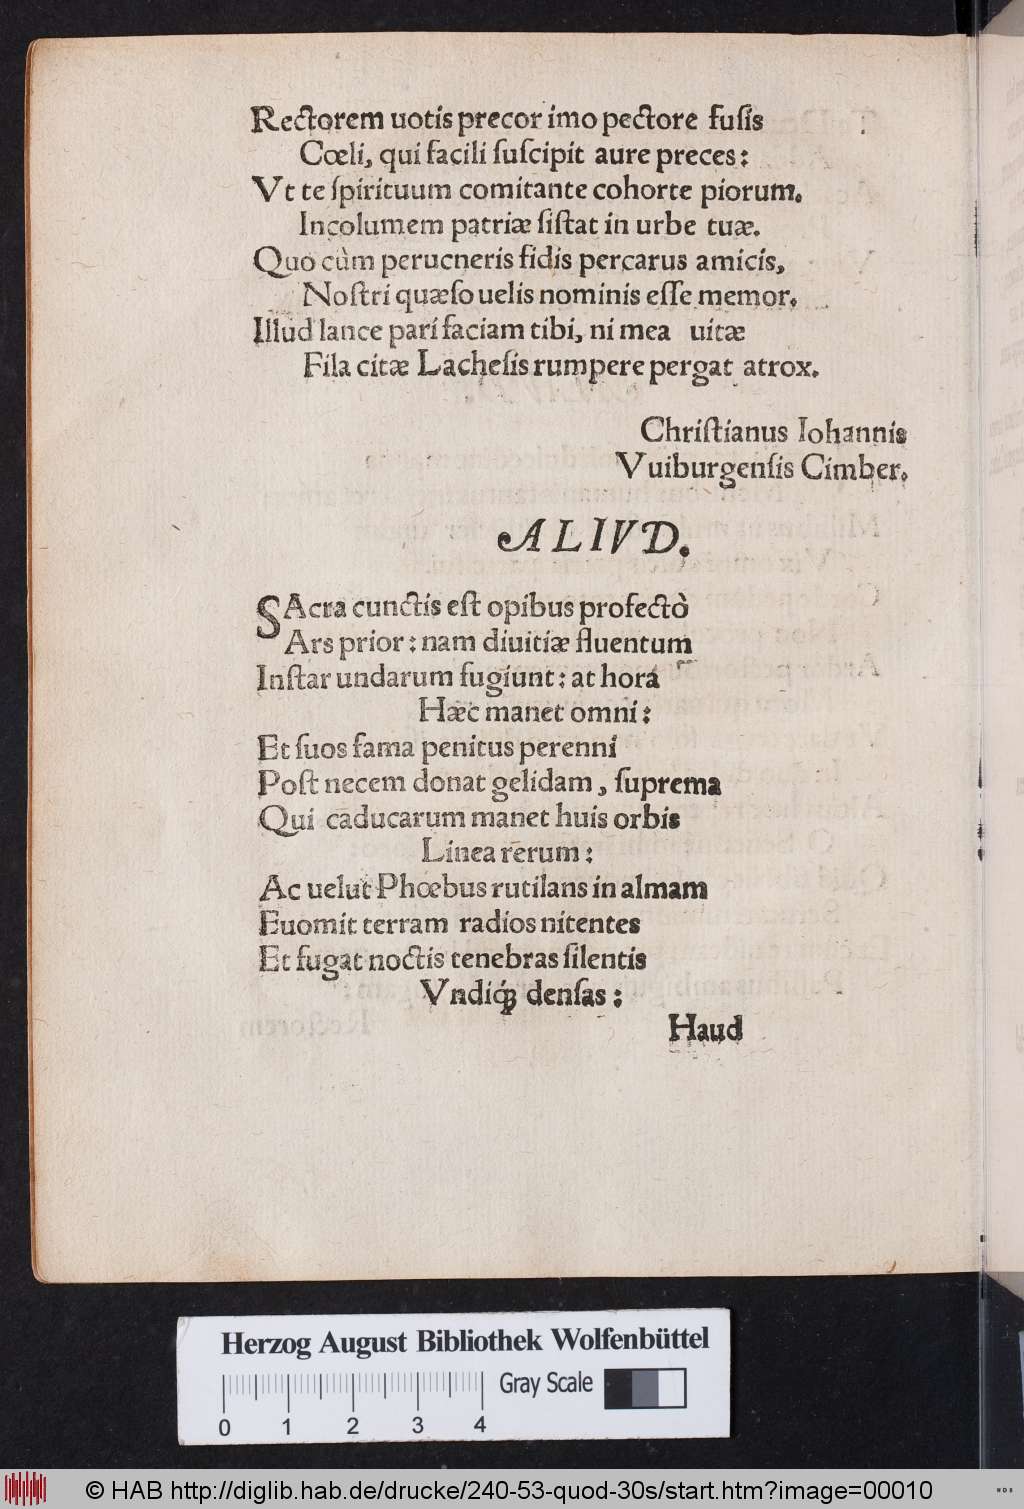 Rectorem uotis precor imo pectore fusis
Cœli, qui facili suscipit aure preces:
Vt te spirituum comitante cohorte piorum.
Incolumem patriæ sistat in urbe tuæ.
Quo cùm perueneris fidis percarus amicis,
Nostri quæso uelis nominis esse memor.
Illud lance pari faciam tibi, ni mea uitæ
Fila citæ Lachesis rumpere pergat atrox.
Christianus Iohannis
Vuiburgensis Cimber.
ALIVD.
SAcra cunctis est opibus profectò
Ars prior: nam diuitiæ fluentum
Instar undarum fugiunt: at hora
Hæc manet omni:
Et suos fama penitus perenni
Post necem donat gelidam, suprema
Qui caducarum manet huis orbis
Linea rerum:
Ac uelut Phœbus rutilans in almam
Euomit terram radios nitentes
Et fugat noctis tenebras silentis
Vndiq́ꝫ densas:
Haud
Herzog August Bibliothek Wolfenbüttel
Gray Scale
0 1 2 3 4
© HAB http://diglib.hab.de/drucke/240-53-quod-30s/start.htm?image=00010